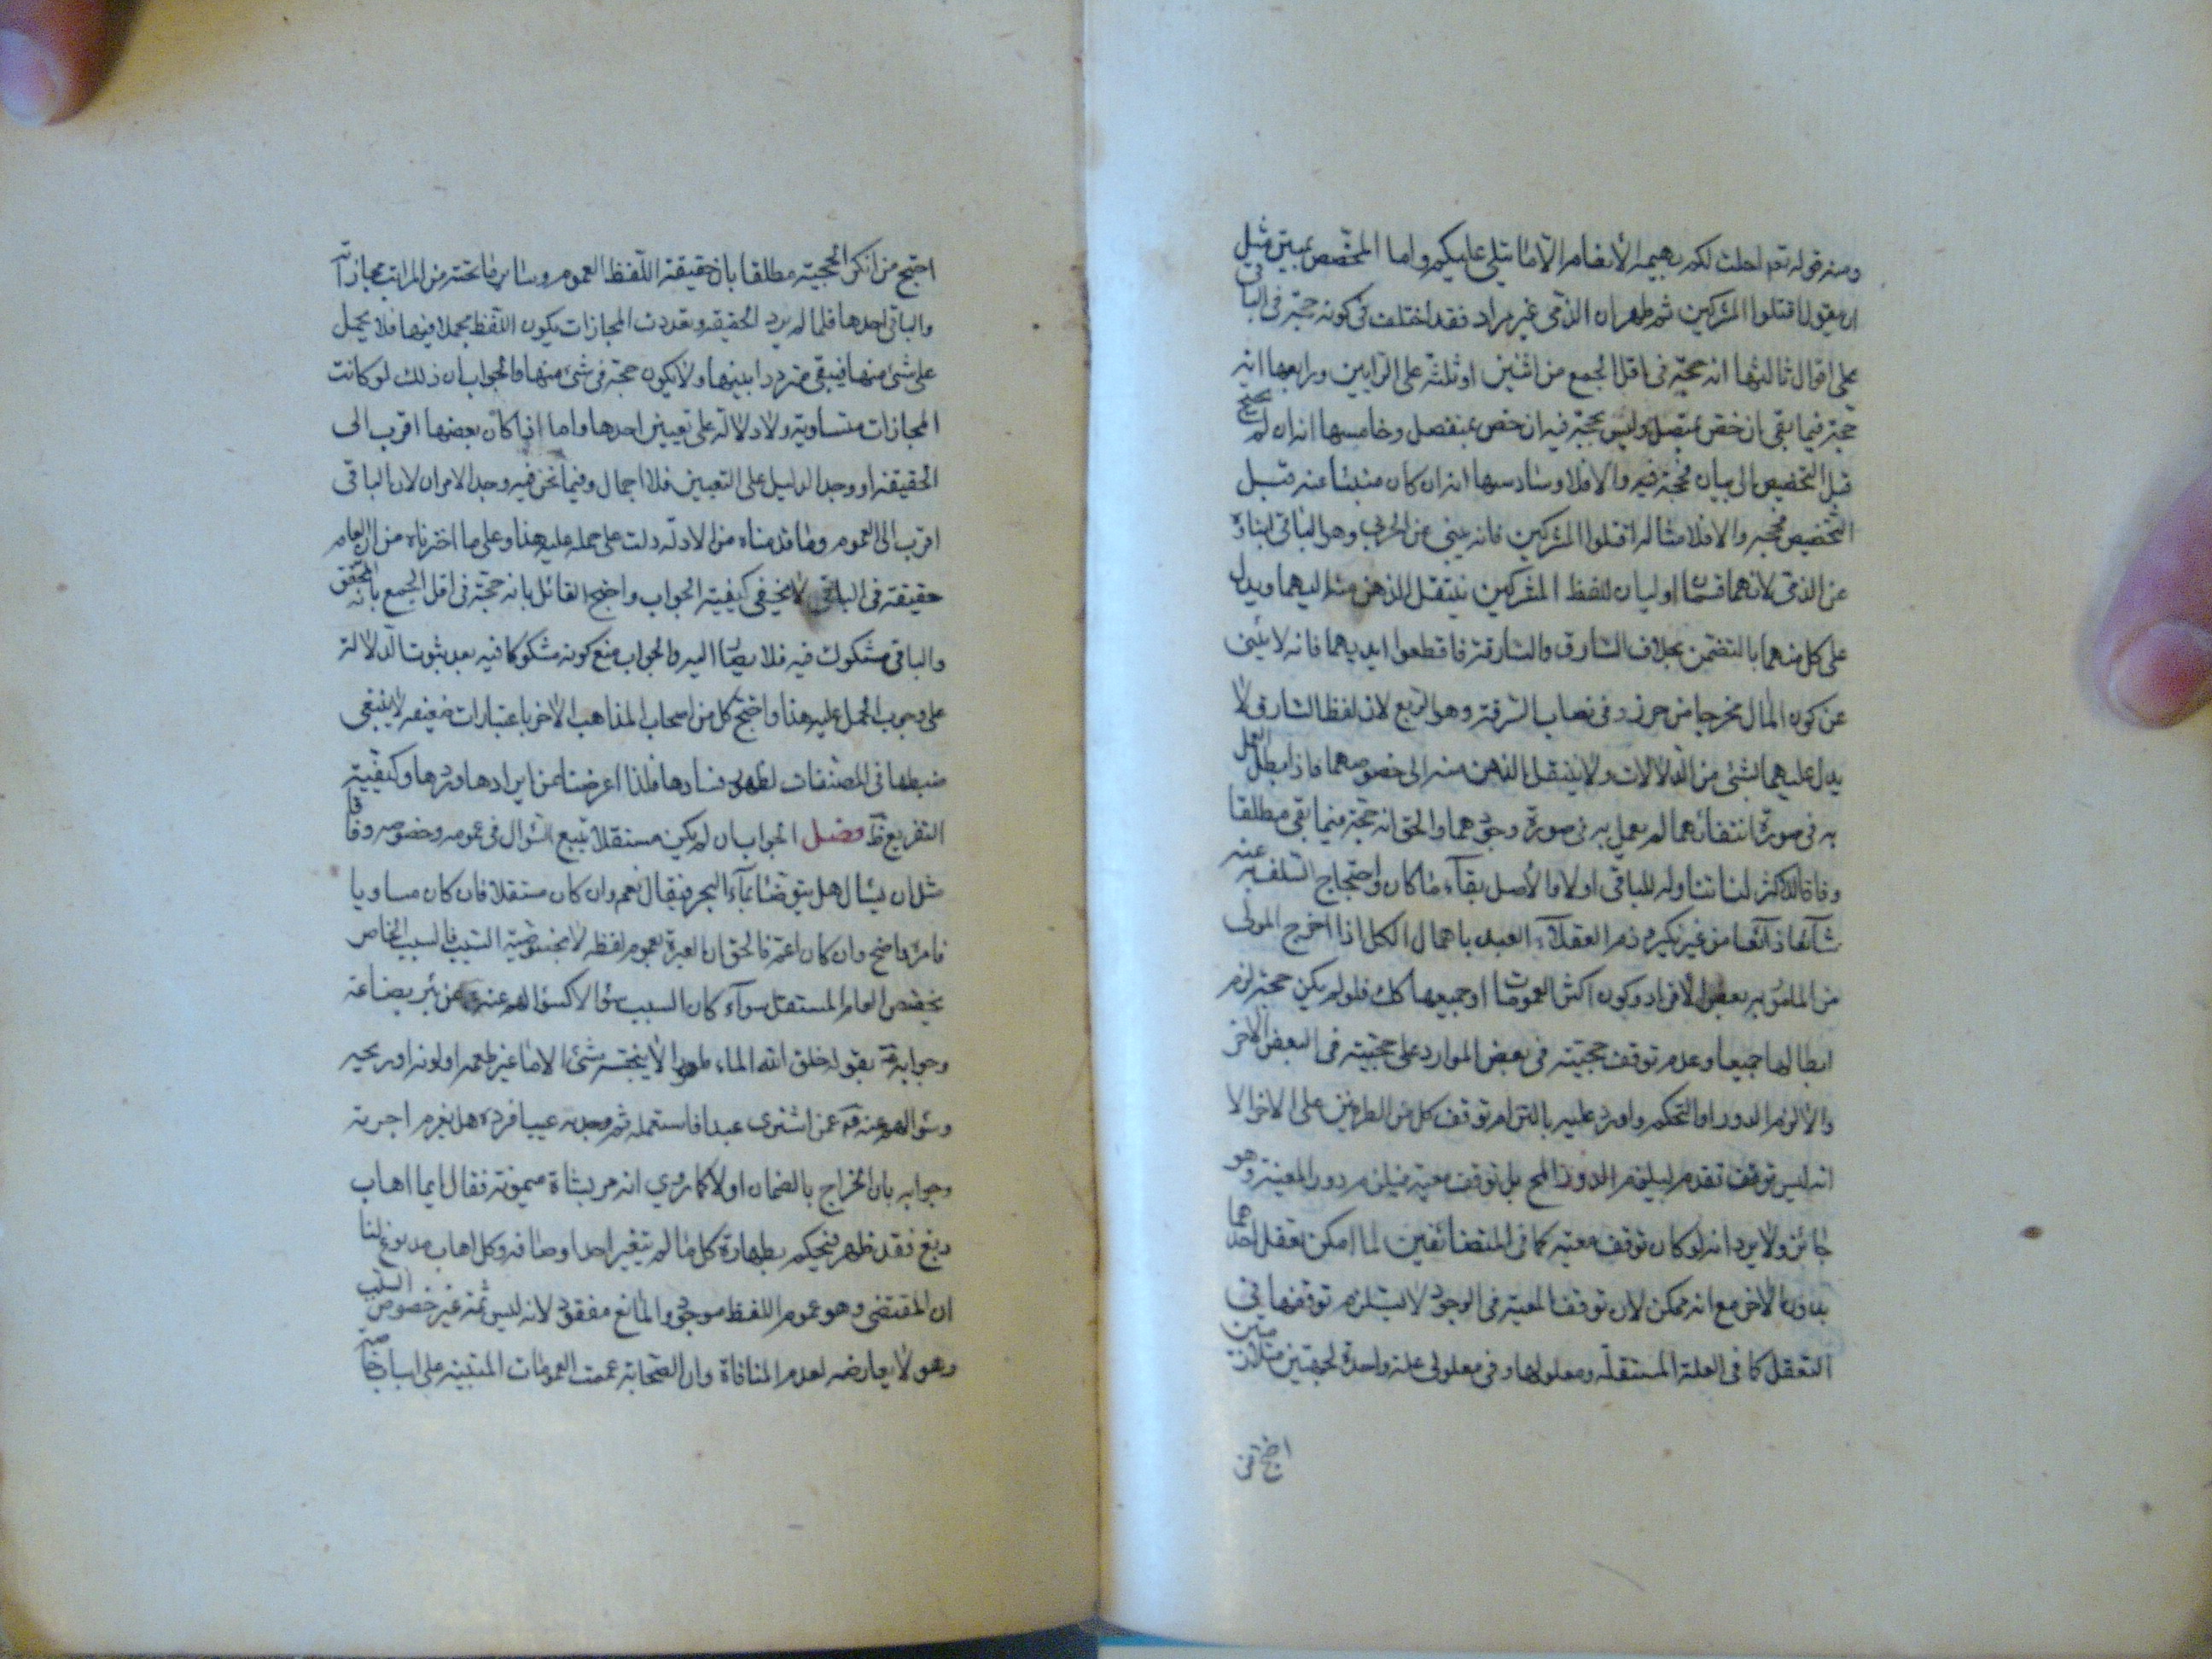 ومنه قوله تعم احلت لكم بهيمة الأنعام الا ما يتلى عليكم واما المخصص بمبين مثل
ان يقول اقتلوا المشركين ثم ظهر ان الذمى غير مراد فقد اختلف فى كونه حجة فى الباقى
على اقوال ثالثها انه حجة فى اقل الجمع من اثنين او ثلثة على الرايين ورابعها انه
حجة فيما بقى ان خص بمتصل وليس بحجة فيه ان خص بمنفصل وخامسها انه ان لم يحتج
قبل التخصيص الى بيان فحجة فيه والا فلا وسادسها انه ان كان منبئا عنه قبل
التخصيص فحجة والا فلا مثاله اقتلوا المشركين فانه ينبى عن الحربى وهو الباقى انباءه
عن الذمى لانهما قسمان اوليان للفظ المشركين ينتقل الذهن منه اليهما ويدل
على كل منهما بالتضمن بخلاف السارق والسارقة فاقطعوا ايديهما فانه لا ينبئ
عن كون المال مخرجا من حرز وفى نصاب السرقة وهو الربع لان لفظ السارق لا
يدل عليهما بشئ من الدلالات ولا ينتقل الذهن منه الى خصوصهما فاذا بطل العمل
به فى صورة انتفائهما لم يعمل به فى صورة وجودهما والحق انه حجة فيما بقى مطلقا
وفاقا للاكثر لنا تناوله للباقى اولا والأصل بقآء ما كان واحتجاج السلف به عنه
شآئعا ذآئعا من غير نكير وذم العقلآء العبد باهمال الكل اذا اخرج المولى
من المامور به بعض الأفراد وكون اكثر العمومات او جميعها كك فلو لم يكن حجة لزم
ابطالها جميعا وعدم توقف حجيته فى بعض الموارد على حجيته فى البعض الاخر
والا لزم الدور او التحكم واورد عليه بالتزام توقف كل من الطرفين على الاخر الا
انه ليس توقف تقدم ليلزم الدور المح بل توقف معية فيلزم دور المعية وهو
جائز ولا يرد انه لو كان توقف معية كما فى المتضائفين لما امكن تعقل احدهما
بدون الاخر مع انه ممكن لان توقف المعية فى الوجود لا يستلزم توقفها فى
التعقل كما فى العلة المستقلة ومعلولها وفى معلولى علة واحدة لجهتين متلازمتين
احتج من
احتج من انكر الحجية مطلقا بان حقيقة اللفظ العموم وساير ما تحته من المراتب مجازاته
والباقى احدها فلما لم يرد الحقيقة وتعددت المجازات يكون اللفظ مجملا فيها فلا يحمل
على شئ منها فيبقى مترددا بينها ولا يكون حجة فى شئ منها والجواب ان ذلك لو كانت
المجازات متساوية ولا دلالة على تعيين احدها واما اذا كان بعضها اقرب الى
الحقيقة او وجد الدليل على التعيين فلا اجمال وفيما نحن فيه وجد الامران لان الباقى
اقرب الى العموم وما قدمناه من الادلة دلت على حمله عليه هذا وعلى ما اخترناه من ان العام
حقيقة فى الباقى لا يخفى كيفية الجواب واحتج القائل بانه حجة فى اقل الجمع بانه المحقق
والباقى مشكوك فيه فلا يصار اليه والجواب منع كونه مشكوكا فيه بعد ثبوت الدلالة
على وجوب الحمل عليه هذا واحتج كل من اصحاب المذاهب الاخر باعتبارات ضعيفة لا ينبغى
ضبطها فى المصنفات لظهور فسادها فلذا اعرضنا عن ايرادها وردها وكيفية
التفريع ظ فصل الجواب ان لم يكن مستقلا يتبع السؤال فى عمومه وخصوصه وفاقا
مثل ان يسال هل يتوضا بمآء البحر فيقال نعم وان كان مستقلا فان كان مساويا
فامره واضح وان كان اعم فالحق ان العبرة بعموم لفظه لا بخصوصية السبب فالسبب الخاص
لا يخصص العام المستقل سوآء كان السبب سؤالا كسؤالهم عنه ص عن بئر بضاعة
وجوابه ص بقوله خلق الله الماء طهورا لا ينجسه شئ الا ما غير طعمه او لونه او ريحه
وسؤالهم عنه ص عمن اشترى عبدا فاستعمله ثم وجد به عيبا فرده هل يغرم اجرته
وجوابه بان الخراج بالضمان اولا كما روي انه مر بشاة ميمونة فقال ايما اهاب
دبغ فقد طهر فيحكم بطهارة كل ما لم يتغير احد اوصافه وكل اهاب مدبوغ لنا
ان المقتضى وهو عموم اللفظ موجود والمانع مفقود لانه ليس ثمة غير خصوص السبب
وهو لا يعارضه لعدم المنافاة وان الصحابة عممت العمومات المبتنية على اسباب خاصة